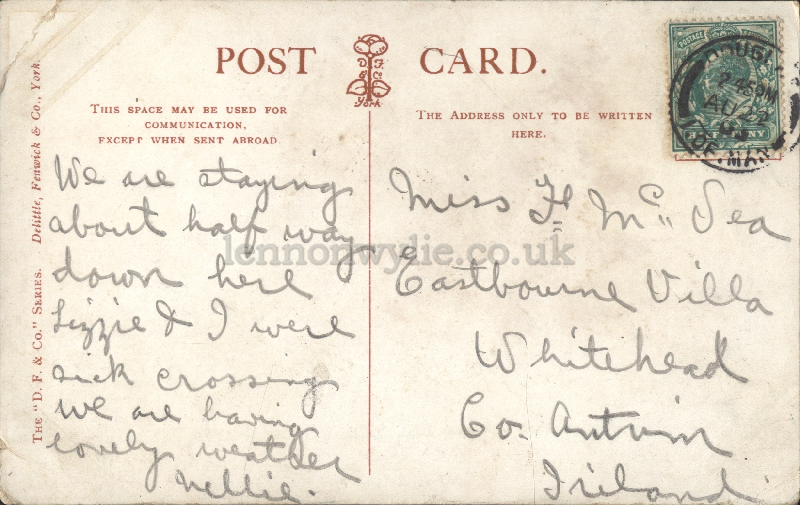 POST CARD.
D. F. & Co. York
THIS SPACE MAY BE USED FOR
COMMUNICATION,
EXCEPT WHEN SENT ABROAD.
THE ADDRESS ONLY TO BE WRITTEN
HERE.
THE "D. F. & CO." SERIES. Delittle, Fenwick & Co., York.
We are staying
about half way
down here
Lizzie & I were
sick crossing
We are having
lovely weather
Nellie.
Miss H. Mc Sea
Eastbourne Villa
Whitehead
Co. Antrim
Ireland
POSTAGE
DOUGLAS
2.45PM
AU 22
ISLE OF MAN
lennonwylie.co.uk